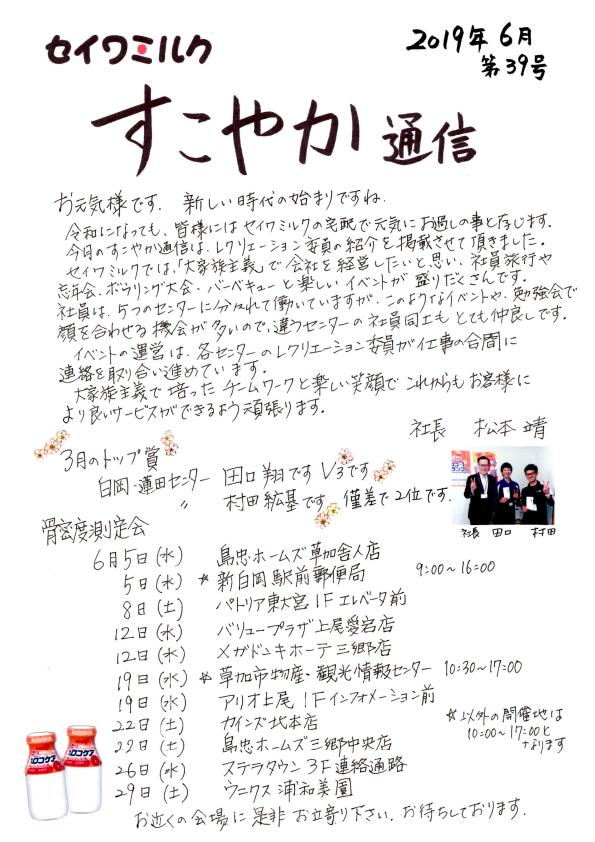 セイワミルク
2019年6月
第39号
すこやか通信
お元気様です. 新しい時代の始まりですね.
令和になっても、皆様にはセイワミルクの宅配で元気にお過しの事と存じます.
今月のすこやか通信は、レクリエーション委員の紹介を掲載させて頂きました.
セイワミルクでは、「大家族主義」で会社を経営したいと思い、社員旅行や
忘年会、ボウリング大会、バーベキューと楽しいイベントが盛りだくさんです.
社員は、5つのセンターに分かれて働いていますが、このようなイベントや、勉強会で
顔を合わせる機会が多いので、違うセンターの社員同士もとても仲良しです.
イベントの運営は、各センターのレクリエーション委員が仕事の合間に
連絡を取り合い進めています.
大家族主義で培ったチームワークと楽しい笑顔でこれからもお客様に
より良いサービスができるよう頑張ります.
社長 松本靖
3月のトップ賞
白岡・蓮田センター 田口翔です V3です
〃 村田紘基です 僅差で2位です.
社長 田口 村田
骨密度測定会
6月5日(水) 島忠ホームズ草加舎人店
5日(水) ☆新白岡駅前郵便局 9:00〜16:00
8日(土) パトリア東大宮1Fエレベータ前
12日(水) バリュープラザ上尾愛宕店
12日(水) メガドンキホーテ三郷店
19日(水) ☆草加市物産・観光情報センター 10:30〜17:00
19日(水) アリオ上尾1Fインフォメーション前
22日(土) カインズ北本店
22日(土) 島忠ホームズ三郷中央店
26日(水) ステラタウン3F連絡通路
29日(土) ウニクス浦和美園
☆以外の開催地は
10:00〜17:00と
なります
お近くの会場に是非お立寄り下さい. お待ちしております.